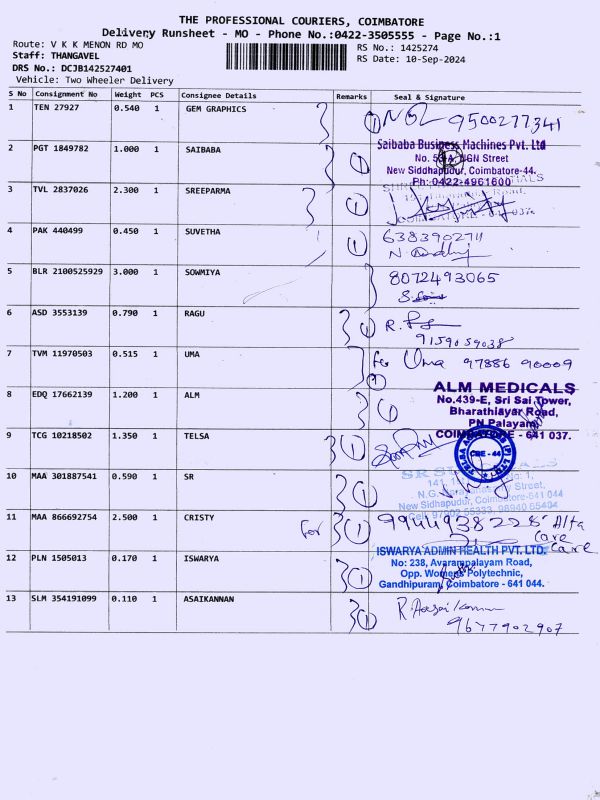 THE PROFESSIONAL COURIERS, COIMBATORE
Delivery Runsheet - MO - Phone No.:0422-3505555 - Page No.:1
Route: V K K MENON RD MO
RS No.: 1425274
Staff: THANGAVEL
RS Date: 10-Sep-2024
DRS No.: DCJB142527401
Vehicle: Two Wheeler Delivery
S No Consignment No Weight PCS Consignee Details Remarks Seal & Signature
1 TEN 27927 0.540 1 GEM GRAPHICS 1 9500277341
2 PGT 1849782 1.000 1 SAIBABA 1
Saibaba Business Machines Pvt. Ltd
New Siddhapudur, Coimbatore-44.
Ph:0422-4961600
3 TVL 2837026 2.300 1 SREEPARMA 1
4 PAK 440499 0.450 1 SUVETHA 1 6383902711
5 BLR 2100525929 3.000 1 SOWMIYA 8072493065
6 ASD 3553139 0.790 1 RAGU 1
9159059038
7 TVM 11970503 0.515 1 UMA for Uma 97886 90009
8 EDQ 17662139 1.200 1 ALM 1
ALM MEDICALS
No.439-E, Sri Sai Tower,
Bharathiayar Road,
PN Palayam
COIMBATORE - 641 037.
9 TCG 10218502 1.350 1 TELSA 1
CBE - 44
10 MAA 301887541 0.590 1 SR 1
New Siddhapudur, Coimbatore-641 044
11 MAA 866692754 2.500 1 CRISTY for 1 9944938228 Alta
care
care
12 PLN 1505013 0.170 1 ISWARYA 1
ISWARYA ADMIN HEALTH PVT. LTD.
No: 238, Avarampalayam Road,
Opp. Womens Polytechnic,
Gandhipuram, Coimbatore - 641 044.
13 SLM 354191099 0.110 1 ASAIKANNAN 1 R. Aasaikannan
9677902907